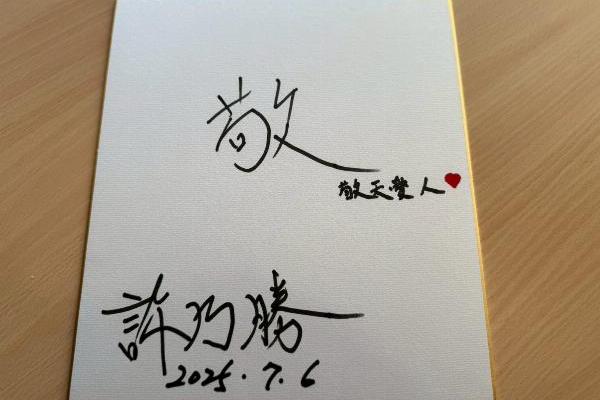 敬
敬天愛人
許巧勝
2025.7.6